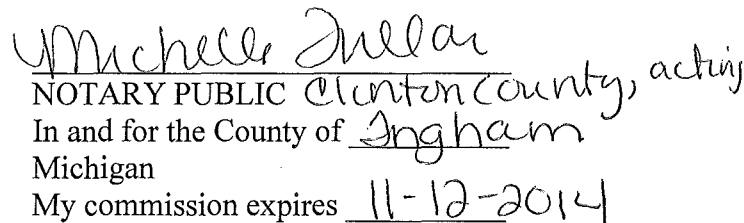 Michelle Fullar
NOTARY PUBLIC Clinton County, acting
In and for the County of Ingham
Michigan
My commission expires 11-12-2014